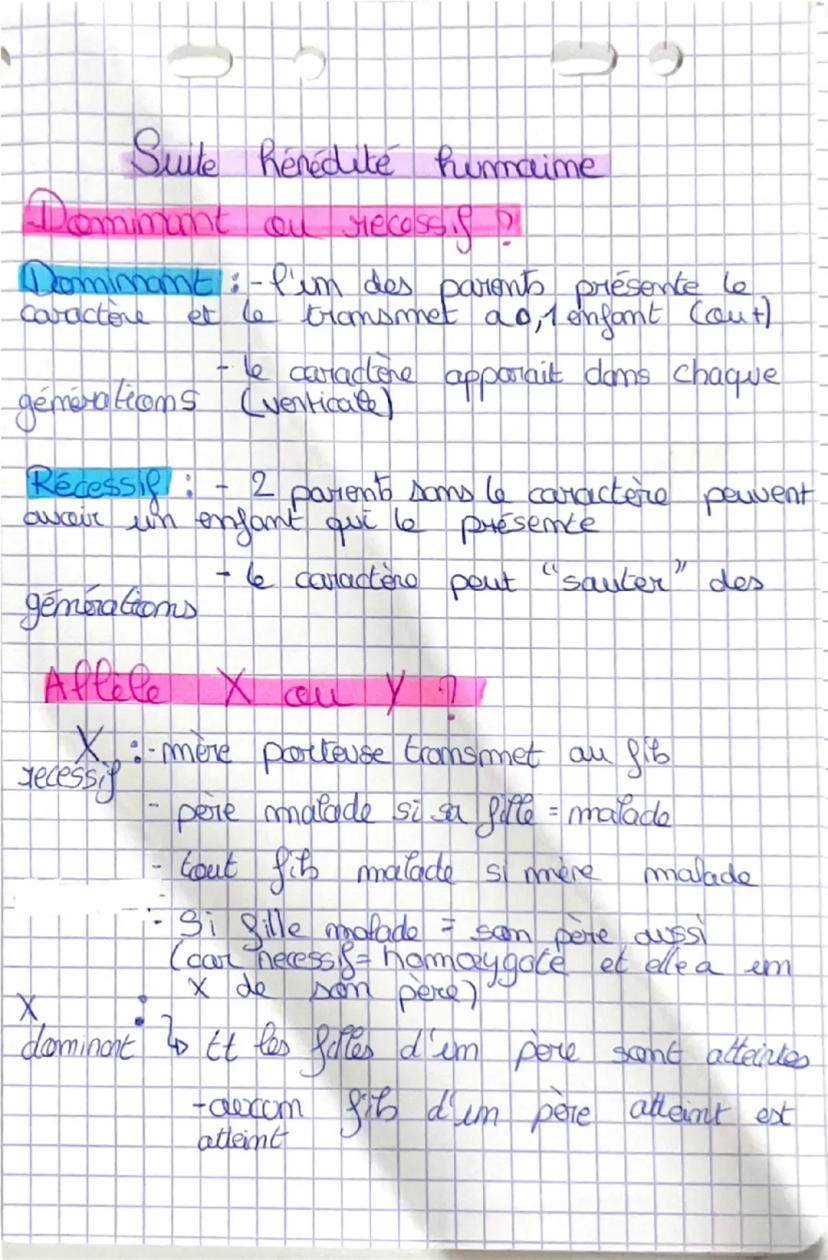 Suite hérédité humaine
Dominant ou recessif ?
Dominant : - l'un des parents présente le
caractère et le transmet a 0,1 enfant (ou+)
- le caractère apparait dans chaque
générations (verticale)
Récessif : - 2 parents sans le caractère peuvent
avoir un enfant qui le présente
- le caractère peut "sauter" des
générations
Allèle X ou Y ?
X :- mère porteuse transmet au fils
recessif
- père malade si sa fille = malade
- tout fils malade si mère malade
- Si fille malade = son père aussi
(car recessif = homozygote et elle a un
X de son père)
X :
dominant ↳ tt les filles d'un père sont atteintes
- aucun fils d'un père atteint est
atteint